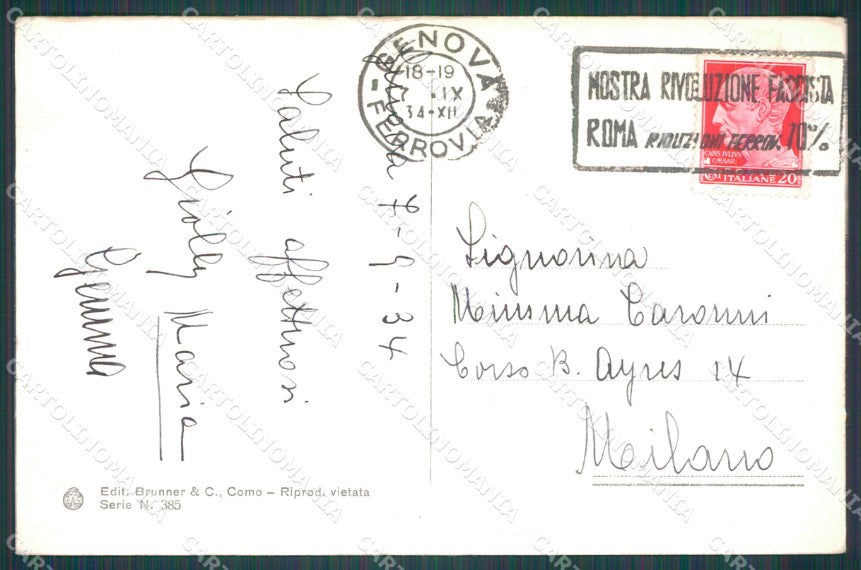 GENOVA
18-19
7 . IX
34-XII
FERROVIA
MOSTRA RIVOLUZIONE FASCISTA
ROMA RIDUZIONI FERROV. 70%
CAIVS IVLIVS
CAESAR
ITALIANE 20
Genova 7-9-34
Saluti affettuosi
Giolly Maria
Gemma
Signorina
Mimma Caronni
Corso B. Ayres 14
Milano
Edit. Brunner & C., Como – Riprod. vietata
Serie N. 385
CARTOLINOMANIA